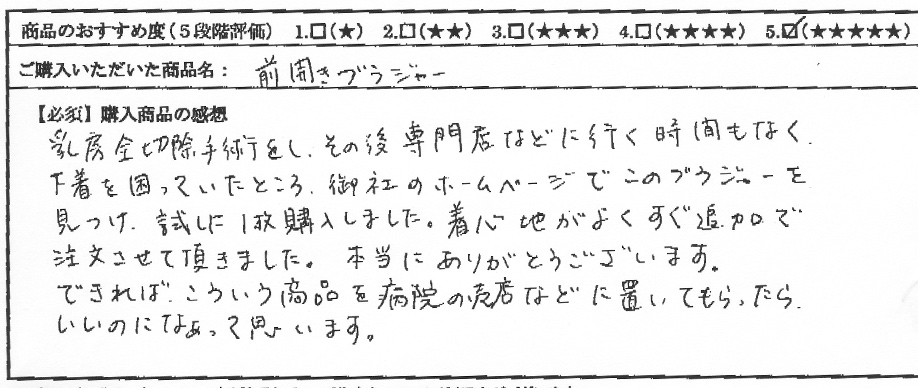 商品のおすすめ度(5段階評価) 1.□(★) 2.□(★★) 3.□(★★★) 4.□(★★★★) 5.☑(★★★★★)
ご購入いただいた商品名: 前開きブラジャー
【必須】購入商品の感想
乳房全切除手術をし、その後専門店などに行く時間もなく、
下着を困っていたところ、御社のホームページでこのブラジャーを
見つけ、試しに1枚購入しました。着心地がよくすぐ追加で
注文させて頂きました。本当にありがとうございます。
できれば、こういう商品を病院の売店などに置いてもらったら、
いいのになぁって思います。